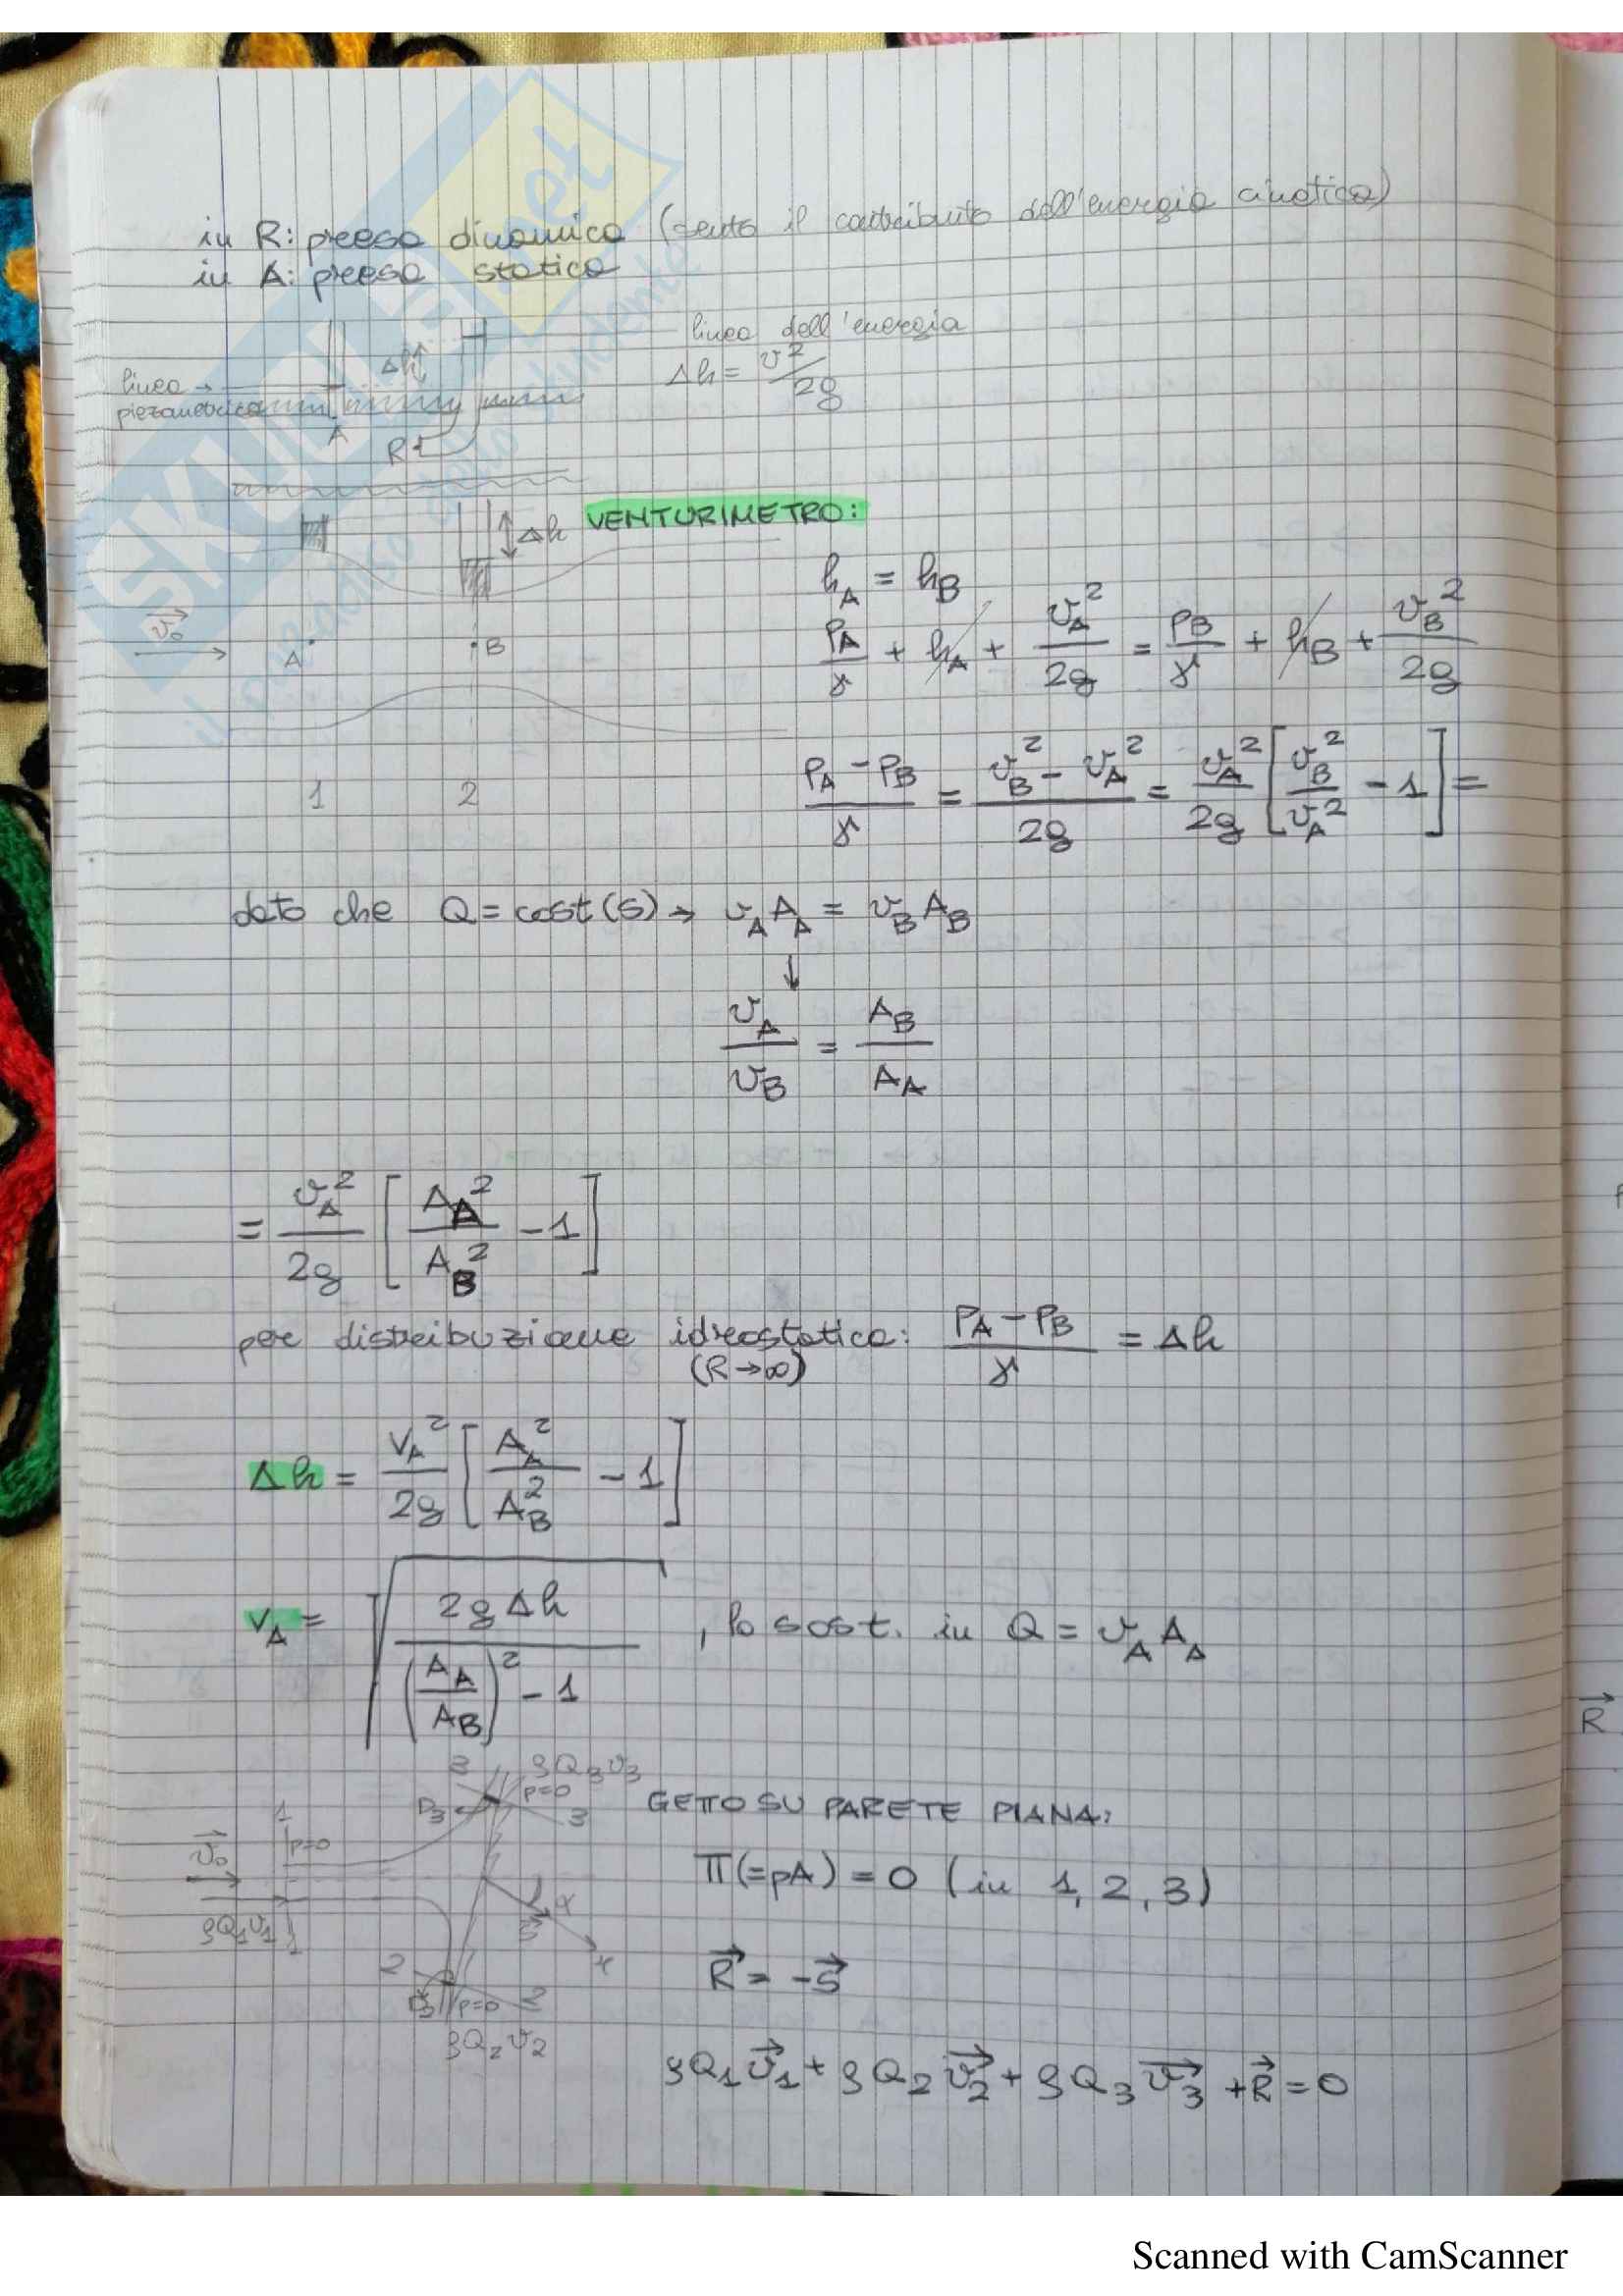 in R: presa dinamica (sento il contributo dell'energia cinetica)
in A: presa statica
linea dell'energia
Δh = v²/2g
Δh
linea →
piezometrica
A
R
VENTURIMETRO:
Δh
h_A = h_B
p_A/γ + h_A + v_A²/2g = p_B/γ + h_B + v_B²/2g
v₀
A
B
(p_A - p_B)/γ = (v_B² - v_A²)/2g = v_A²/2g [v_B²/v_A² - 1] =
1 2
dato che Q = cost(s) → v_A A_A = v_B A_B
↓
v_A/v_B = A_B/A_A
= v_A²/2g [A_A²/A_B² - 1]
per distribuzione idrostatica: (p_A - p_B)/γ = Δh
(R→∞)
Δh = v_A²/2g [A_A²/A_B² - 1]
v_A = √(2gΔh/((A_A/A_B)² - 1)) , lo sost. in Q = v_A A_A
GETTO SU PARETE PIANA:
3
ρQ₃v₃
p=0
3
1
p=0
v₀
ρQ₁v₁
1
α
x
2
p=0
2
ρQ₂v₂
Π(=pA) = 0 (in 1, 2, 3)
R = -S
ρQ₁v₁ + ρQ₂v₂ + ρQ₃v₃ + R = 0
R
SKUOLA.net
il paradiso dello studente
Scanned with CamScanner